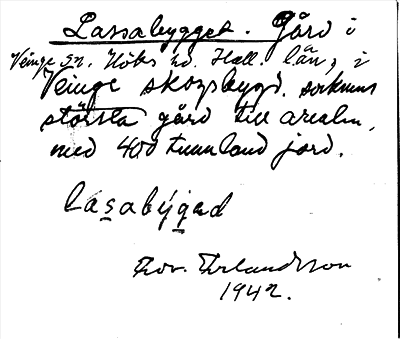 Lassabygget. Gård i
Veinge sn. Höks hd. Hall. län, i
Veinge skogsbygd. socknens
största gård till arealen,
med 400 tunnland jord.
lasabýged
Tor. Erlandsson
1942.